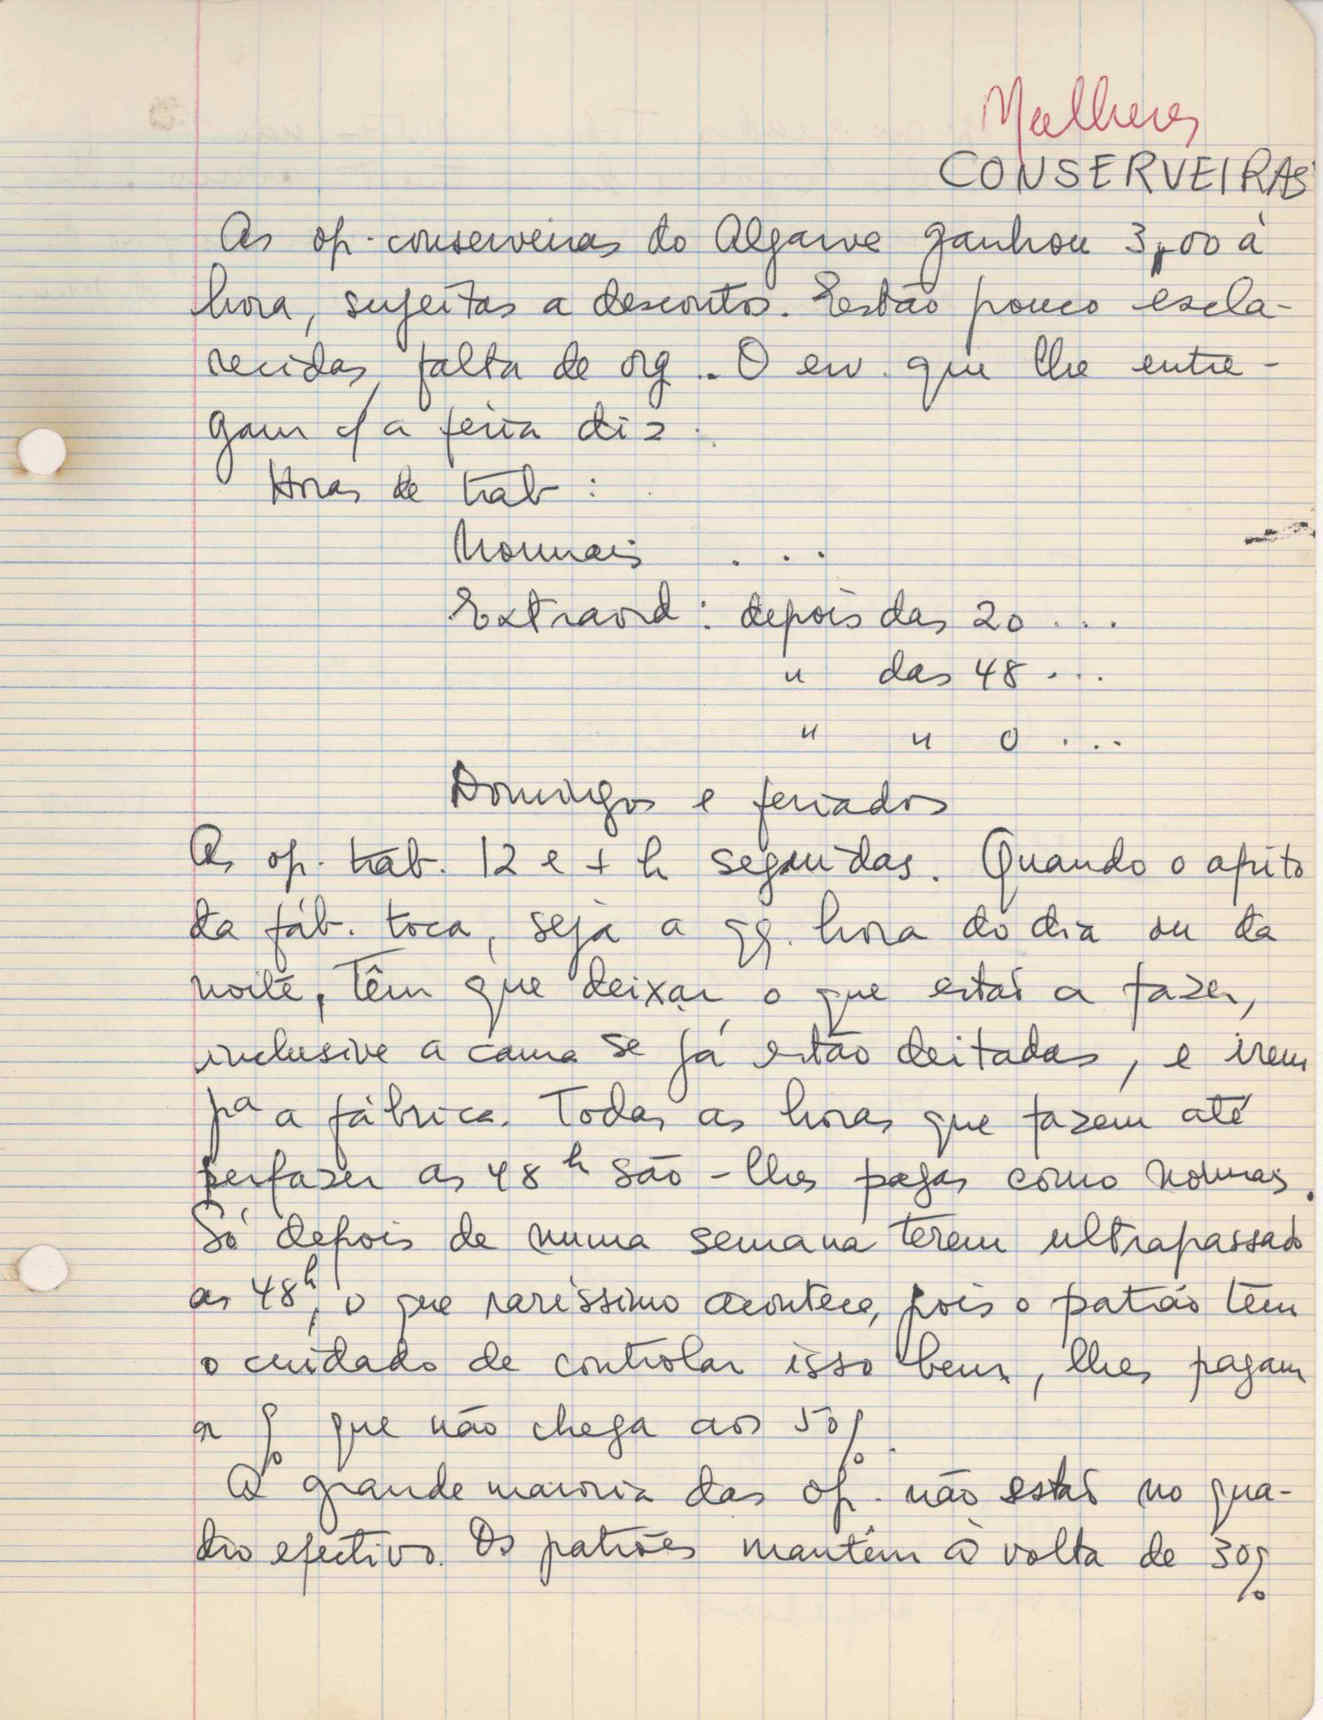 Mulheres
CONSERVEIRAS
As op. conserveiras do Algarve ganham 3,00 à
hora, sujeitas a descontos. Estão pouco escla-
recidas, falta de org.. O env. que lhe entre-
gam c/ a féria diz:
Horas de trab:
Normais ...
Extraord: depois das 20 ...
" das 48 ...
" " 0 ...
Domingos e feriados
As op. trab. 12 e + h seguidas. Quando o apito
da fáb. toca, seja a qq. hora do dia ou da
noite, têm que deixar o que estão a fazer,
inclusive a cama se já estão deitadas, e irem
pª a fábrica. Todas as horas que fazem até
perfazer as 48 h são-lhes pagas como normas.
Só depois de numa semana terem ultrapassado
as 48h, o que raríssimo acontece, pois o patrão têm
o cuidado de controlar isso bem, lhes pagam
a % que não chega aos 50%.
A grande maioria das op. não estão no qua-
dro efectivo. Os patrões mantêm à volta de 30%